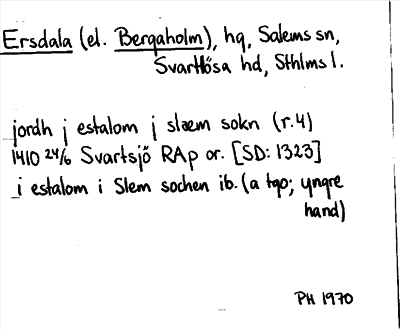 Ersdala (el. Bergaholm), hg, Salems sn,
Svartlösa hd, Sthlms l.
jordh j estalom j slæm sokn (r.4)
1410 24/6 Svartsjö RAp or. [SD: 1323]
i estalom i Slem sochen ib. (a tgo; yngre
hand)
PH 1970